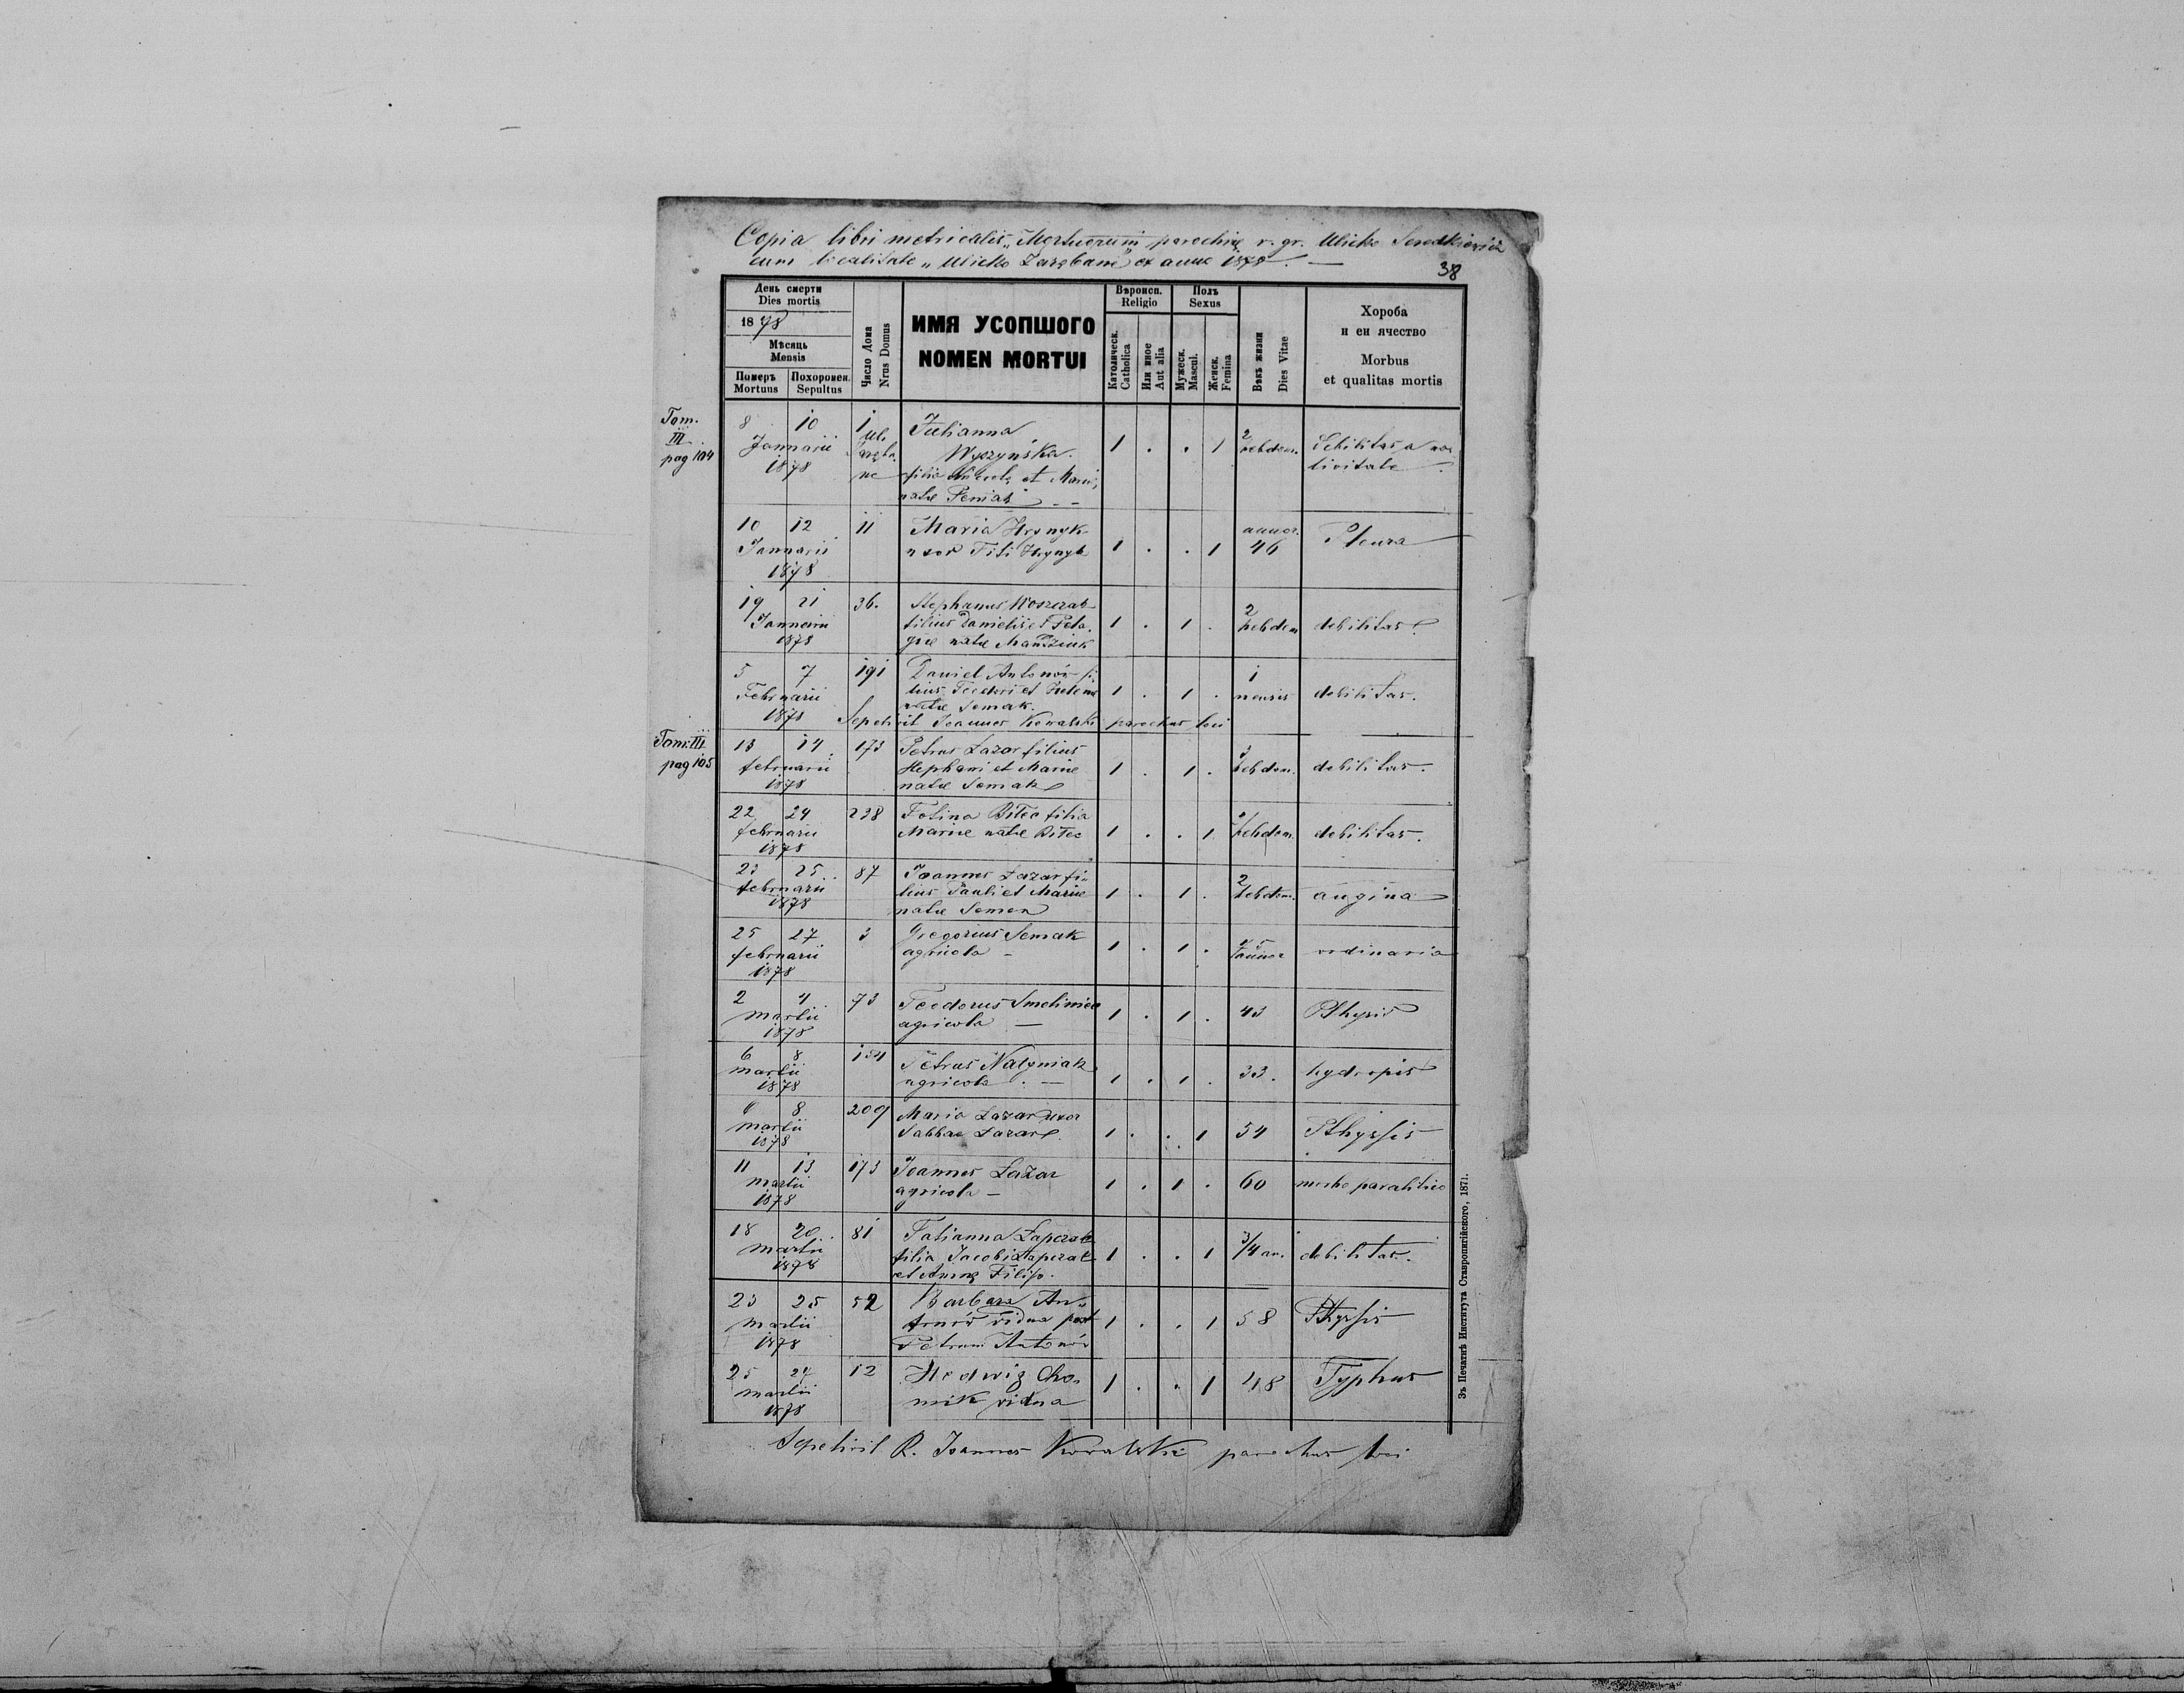 Copia libri metricalis „Mortuorum" parochiæ r. gr. Ulicko Seredkiewicz
cum localitate „Ulicko Zarębane" ex anno 1878. —
38
День смерти
Dies mortis
1878
Мѣсяць
Mensis
Померъ
Mortuus
Похоронен.
Sepultus
Число Дома
Nrus Domus
ИМЯ УСОПШОГО
NOMEN MORTUI
Вѣроисп.
Religio
Католическ.
Catholica
Или иное
Aut alia
Полъ
Sexus
Мужеск.
Mascul.
Женск.
Femina
Вѣкъ жизни
Dies Vitae
Хороба
и еи ячество
Morbus
et qualitas mortis
Tom.
III
pag 104
8 10 Januarii 1878
1 Ul. Zarębane
Julianna
Wyszyńska.
filia et Mariæ
natæ
1 . . 1
2 hebdom.
Debilitas a na-
tivitate
10 12 Januarii 1878
11
Maria Hrynyk
uxor Titi Hrynyk
1 . . 1
annor. 46
Pleura
19 21 Januarii 1878
36.
Stephanus
filius Danielis et Pela-
giæ natæ
1 . 1 .
2 hebdom
debilitas
5 7 Februarii 1878
191
Daniel Antonów fi-
lius Teodori et Helenæ
natæ Semak.
1 . 1 .
1 mensis
debilitas.
Sepelivit Joannes Kowalski parochus loci
Tom. III
pag 105
13 14 februarii 1878
173
Petrus Lazar filius
Stephani et Mariæ
natæ Semak
1 . 1 .
3 hebdom.
debilitas.
22 24 februarii 1878
238
Fotina Bitec filia
Mariæ natæ Bitec
1 . . 1.
hebdom.
debilitas.
23 25 februarii 1878
87
Joannes Lazar fi-
lius Pauli et Mariæ
natæ Semen
1 . 1 .
2 hebdom.
angina
25 27 februarii 1878
3
Gregorius Semak
agricola —
1 . 1 .
annor
ordinaria
2 4 martii 1878
73
Teodorus Smoliniec
agricola —
1 . 1 .
43
Pthysis
6 8 martii 1878
154
Petrus Natyniak
agricola . —
1 . 1 .
33.
hydropis
6 8 martii 1878
209
Maria Lazar uxor
Sabbae Lazar
1 . . 1
54
Pthysis
11 13 martii 1878
173
Joannes Lazar
agricola —
1 . 1 .
60
morbo paralitico
18 20 martii 1878
81
Tatianna Lapczak
filia Jacobi Lapczak
et Annæ Filip.
1 . . 1
3/4 an.
debilitas.
23 25 martii 1878
52
Barbara An-
tonów vidua post
Petrum Antonów
1 . . 1
58
Pthysis
25 27 martii 1878
12
Hedwig Cho-
mik vidua
1 . . 1
48
Typhus
Sepelivit R. Joannes Kowalski parochus loci
Зъ Печатнѣ Института Ставропигійского, 1871.